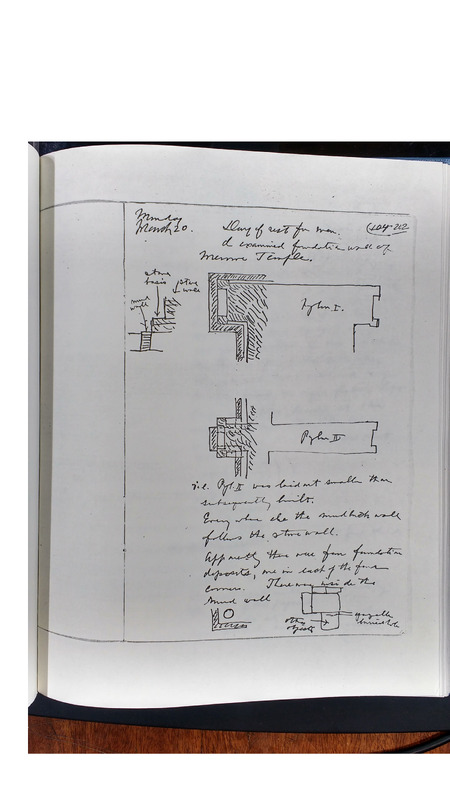 Monday
March 20.
Day of rest for men.
I examined foundation wall of
Meroe Temple.
stone
basis
stone
wall
mud
wall
Pylon I.
Pylon II
i.e. Pyl. II was laid out smaller than
subsequently built.
Every where else the mud brick wall
follows the stone wall.
Apparently there were four foundation
deposits, one in each of the four
corners. There was inside the
mud wall
other
objects